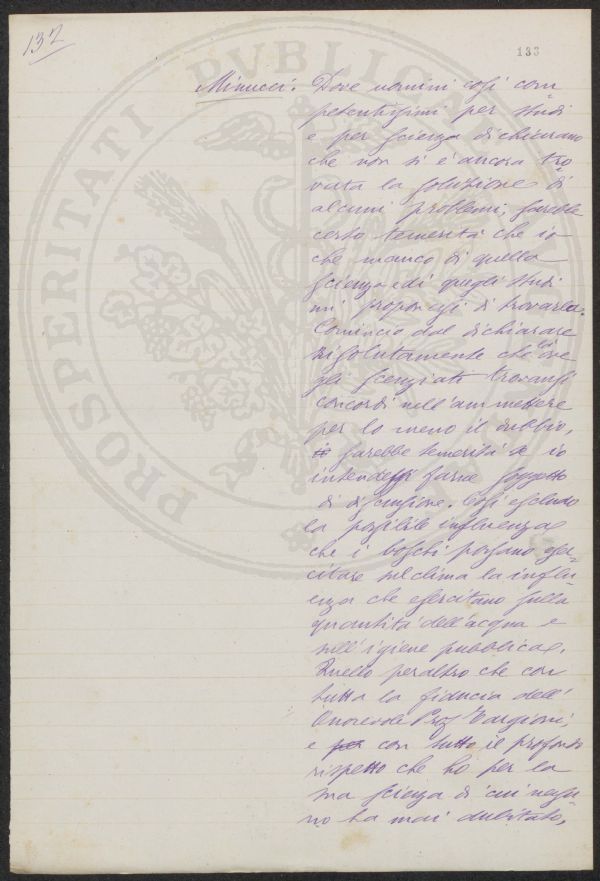 137
133
PROSPERITATI PVBLICAE
Minucci: Dove uomini così com
petentissimi per studi
e per scienza dichiarano
che non si è ancora tro
vata la soluzione di
alcuni problemi, sarebbe
certo temerità che io
che manco di quella
scienza e di quegli studi
mi proponessi di trovarla.
Comincio dal dichiarare
risolutamente che ove
gli scenziati trovansi
concordi nell'ammettere
per lo meno il dubbio,
sarebbe temerità se io
intendessi farne soggetto
di discussione. Così escludo
la possibile influenza
che i boschi possano eser
citare sul clima la influ
enza che esercitano sulla
quantità dell'acqua e
sull'igiene pubblica.
Quello peraltro che con
tutta la fiducia dell'
Onorevole Prof Targioni,
e per con tutto il profondo
rispetto che ho per la
sua scienza di cui nessu
no ha mai dubitato,